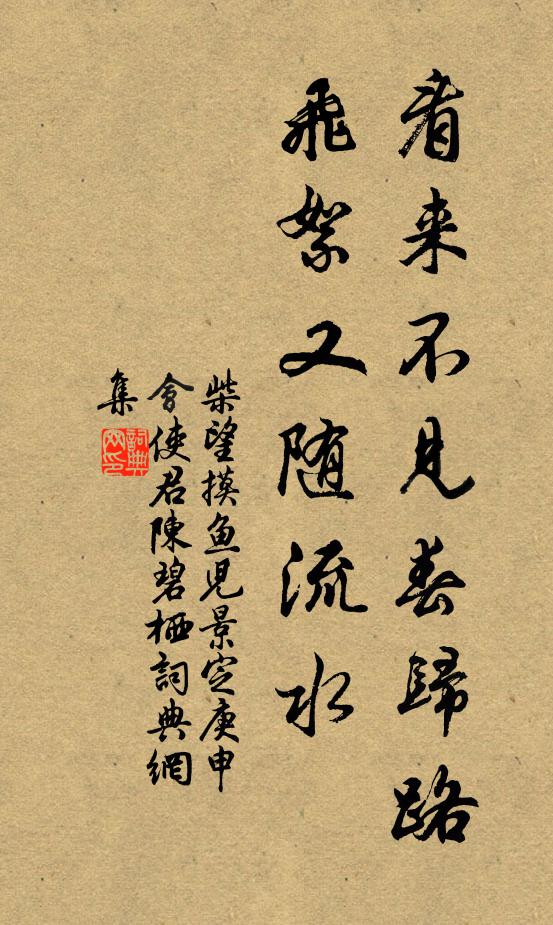 看来不見春歸路
飛絮又随流水
柴望摸魚児景定庚申
會使君陳碧栖詞典網
集
詞典網印